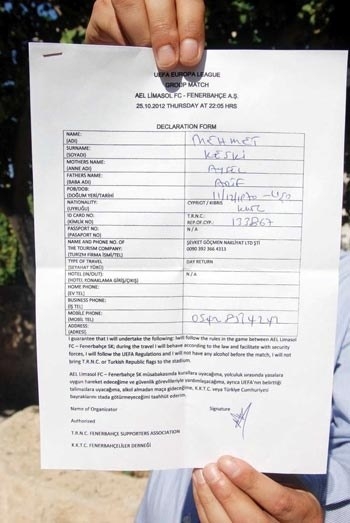 UEFA EUROPA LEAGUE
GROUP MATCH
AEL LİMASOL FC - FENERBAHÇE A.Ş.
25.10.2012 THURSDAY AT 22:05 HRS
DECLARATION FORM
NAME: MEHMET
(ADI)
SURNAME: KESKİ
(SOYADI)
MOTHERS NAME: AYSEL
(ANNE ADI)
FATHERS NAME: ARİF
(BABA ADI)
POB/DOB:
(DOĞUM YERİ/TARİHİ)
NATIONALITY: CYPRIOT / KIBRIS
(UYRUĞU)
ID CARD NO: T.R.N.C.
(KİMLİK NO) REP OF CYP:
PASSPORT NO: N / A
(PASAPORT NO)
NAME AND PHONE NO. OF ŞEVKET GÖÇMEN NAKLİYAT LTD ŞTİ
THE TOURISM COMPANY: 0090 392 366 4313
(TURİZM FİRMA İSMİ/TEL)
TYPE OF TRAVEL DAY RETURN
(SEYAHAT TÜRÜ)
HOTEL (IN/OUT): N / A
(HOTEL KONAKLAMA GİRİŞ/ÇIKIŞ)
HOME PHONE:
(EV TEL)
BUSINESS PHONE:
(İŞ TEL)
MOBILE PHONE:
(MOBİL TEL)
ADDRESS:
(ADRES)
I guarantee that I will undertake the following: I will follow the rules in the game between AEL Limasol
FC – Fenerbahçe SK; during the travel I will behave according to the law and facilitate with security
forces, I will follow the UEFA Regulations and I will not have any alcohol before the match, I will not
bring T.R.N.C. or Turkish Republic flags to the stadium.
AEL Limasol FC – Fenerbahçe SK müsabakasında kurallara uyacağıma, yolculuk sırasında yasalara
uygun hareket edeceğime ve güvenlik görevlileriyle yardımlaşacağıma, ayrıca UEFA'nın belirttiği
talimatlara uyacağıma, alkol almadan maça gideceğime, K.K.T.C. veya Türkiye Cumhuriyeti
bayraklarını stada götürmeyeceğimi taahhüt ederim.
Name of Organizator Signature
Authorized
T.R.N.C. FENERBAHÇE SUPPORTERS ASSOCIATION
K.K.T.C. FENERBAHÇELİLER DERNEĞİ